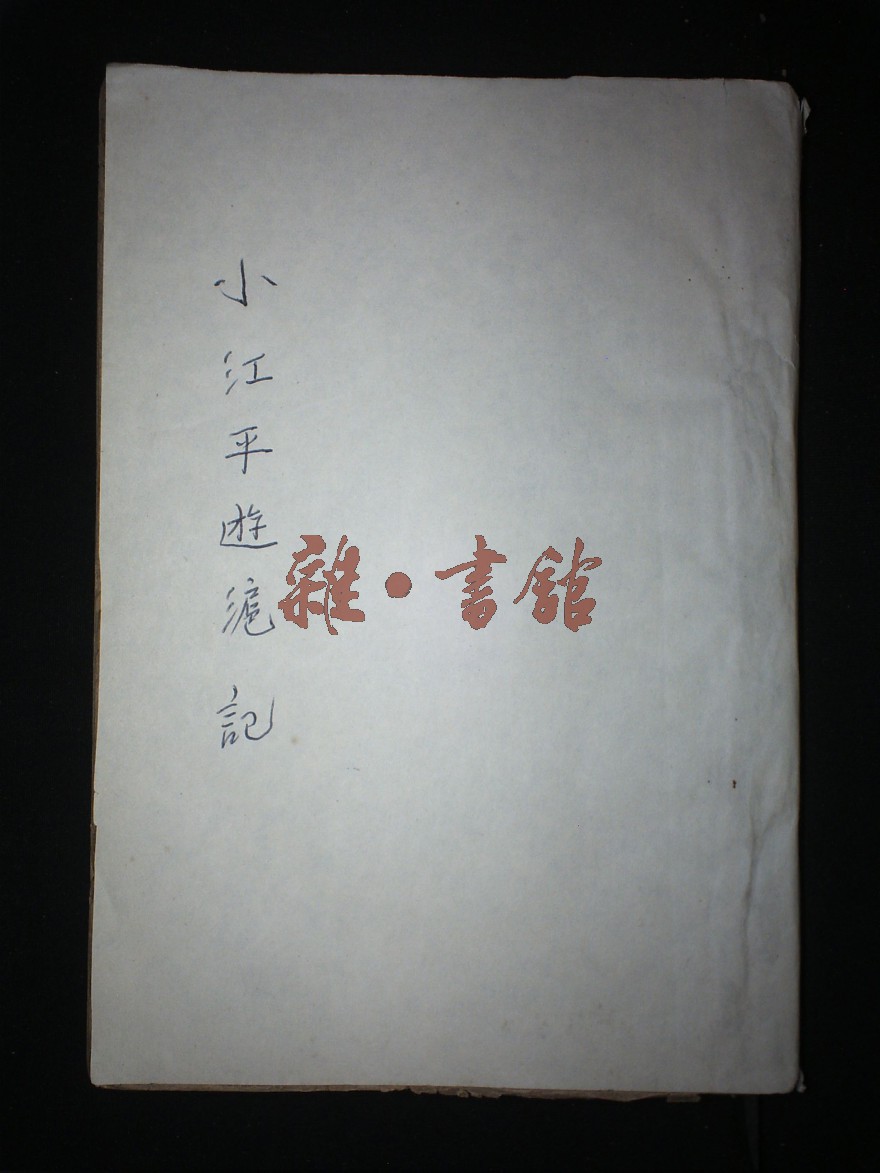 小江平遊滬記
雜·書館